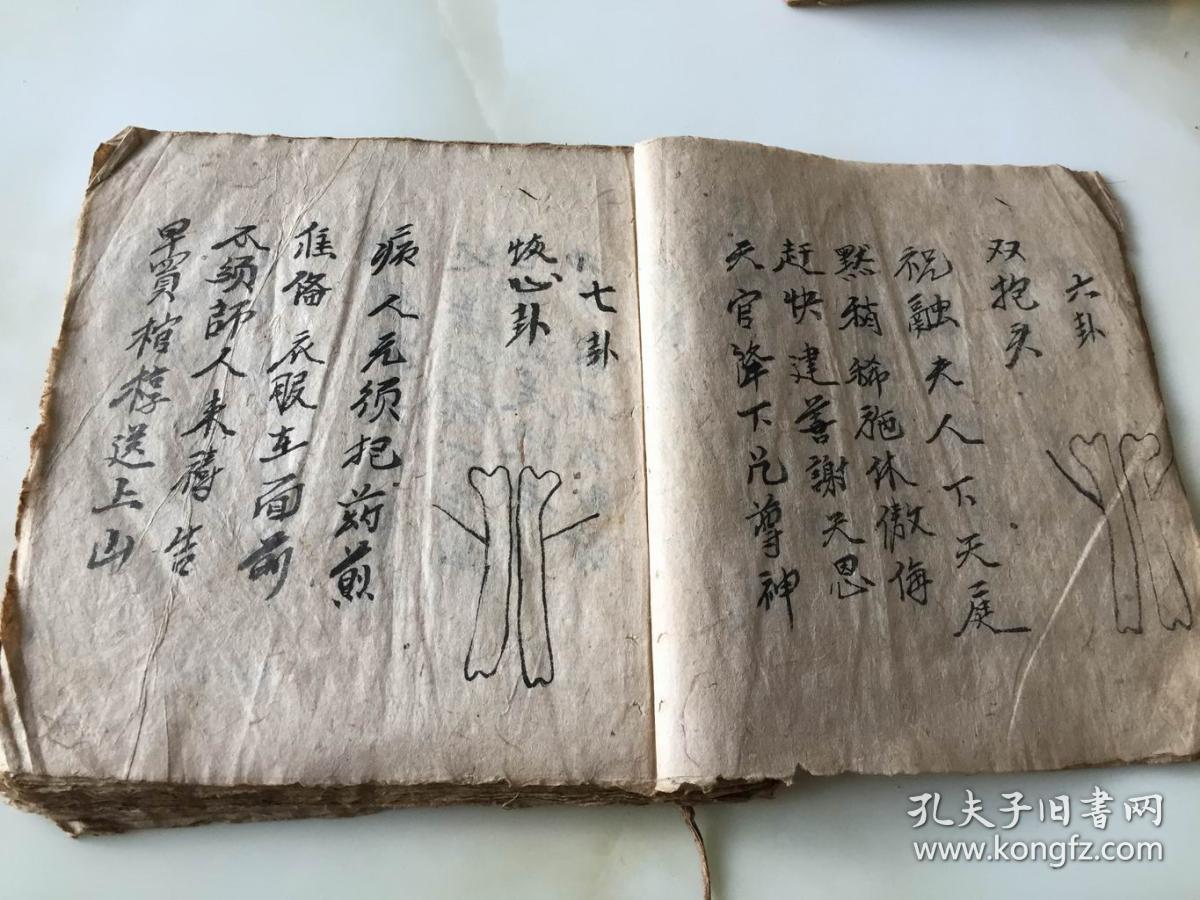 六卦
双抱头
祝融夫人下天庭
黙稍稀施休傲侮
赶快建善謝天恩
天官降下凡尊神
七卦
恢心卦
病人无须把葯煎
准俻衣服在面前
不須師人来禱告
早買棺椁送上山
孔夫子旧书网
www.kongfz.com